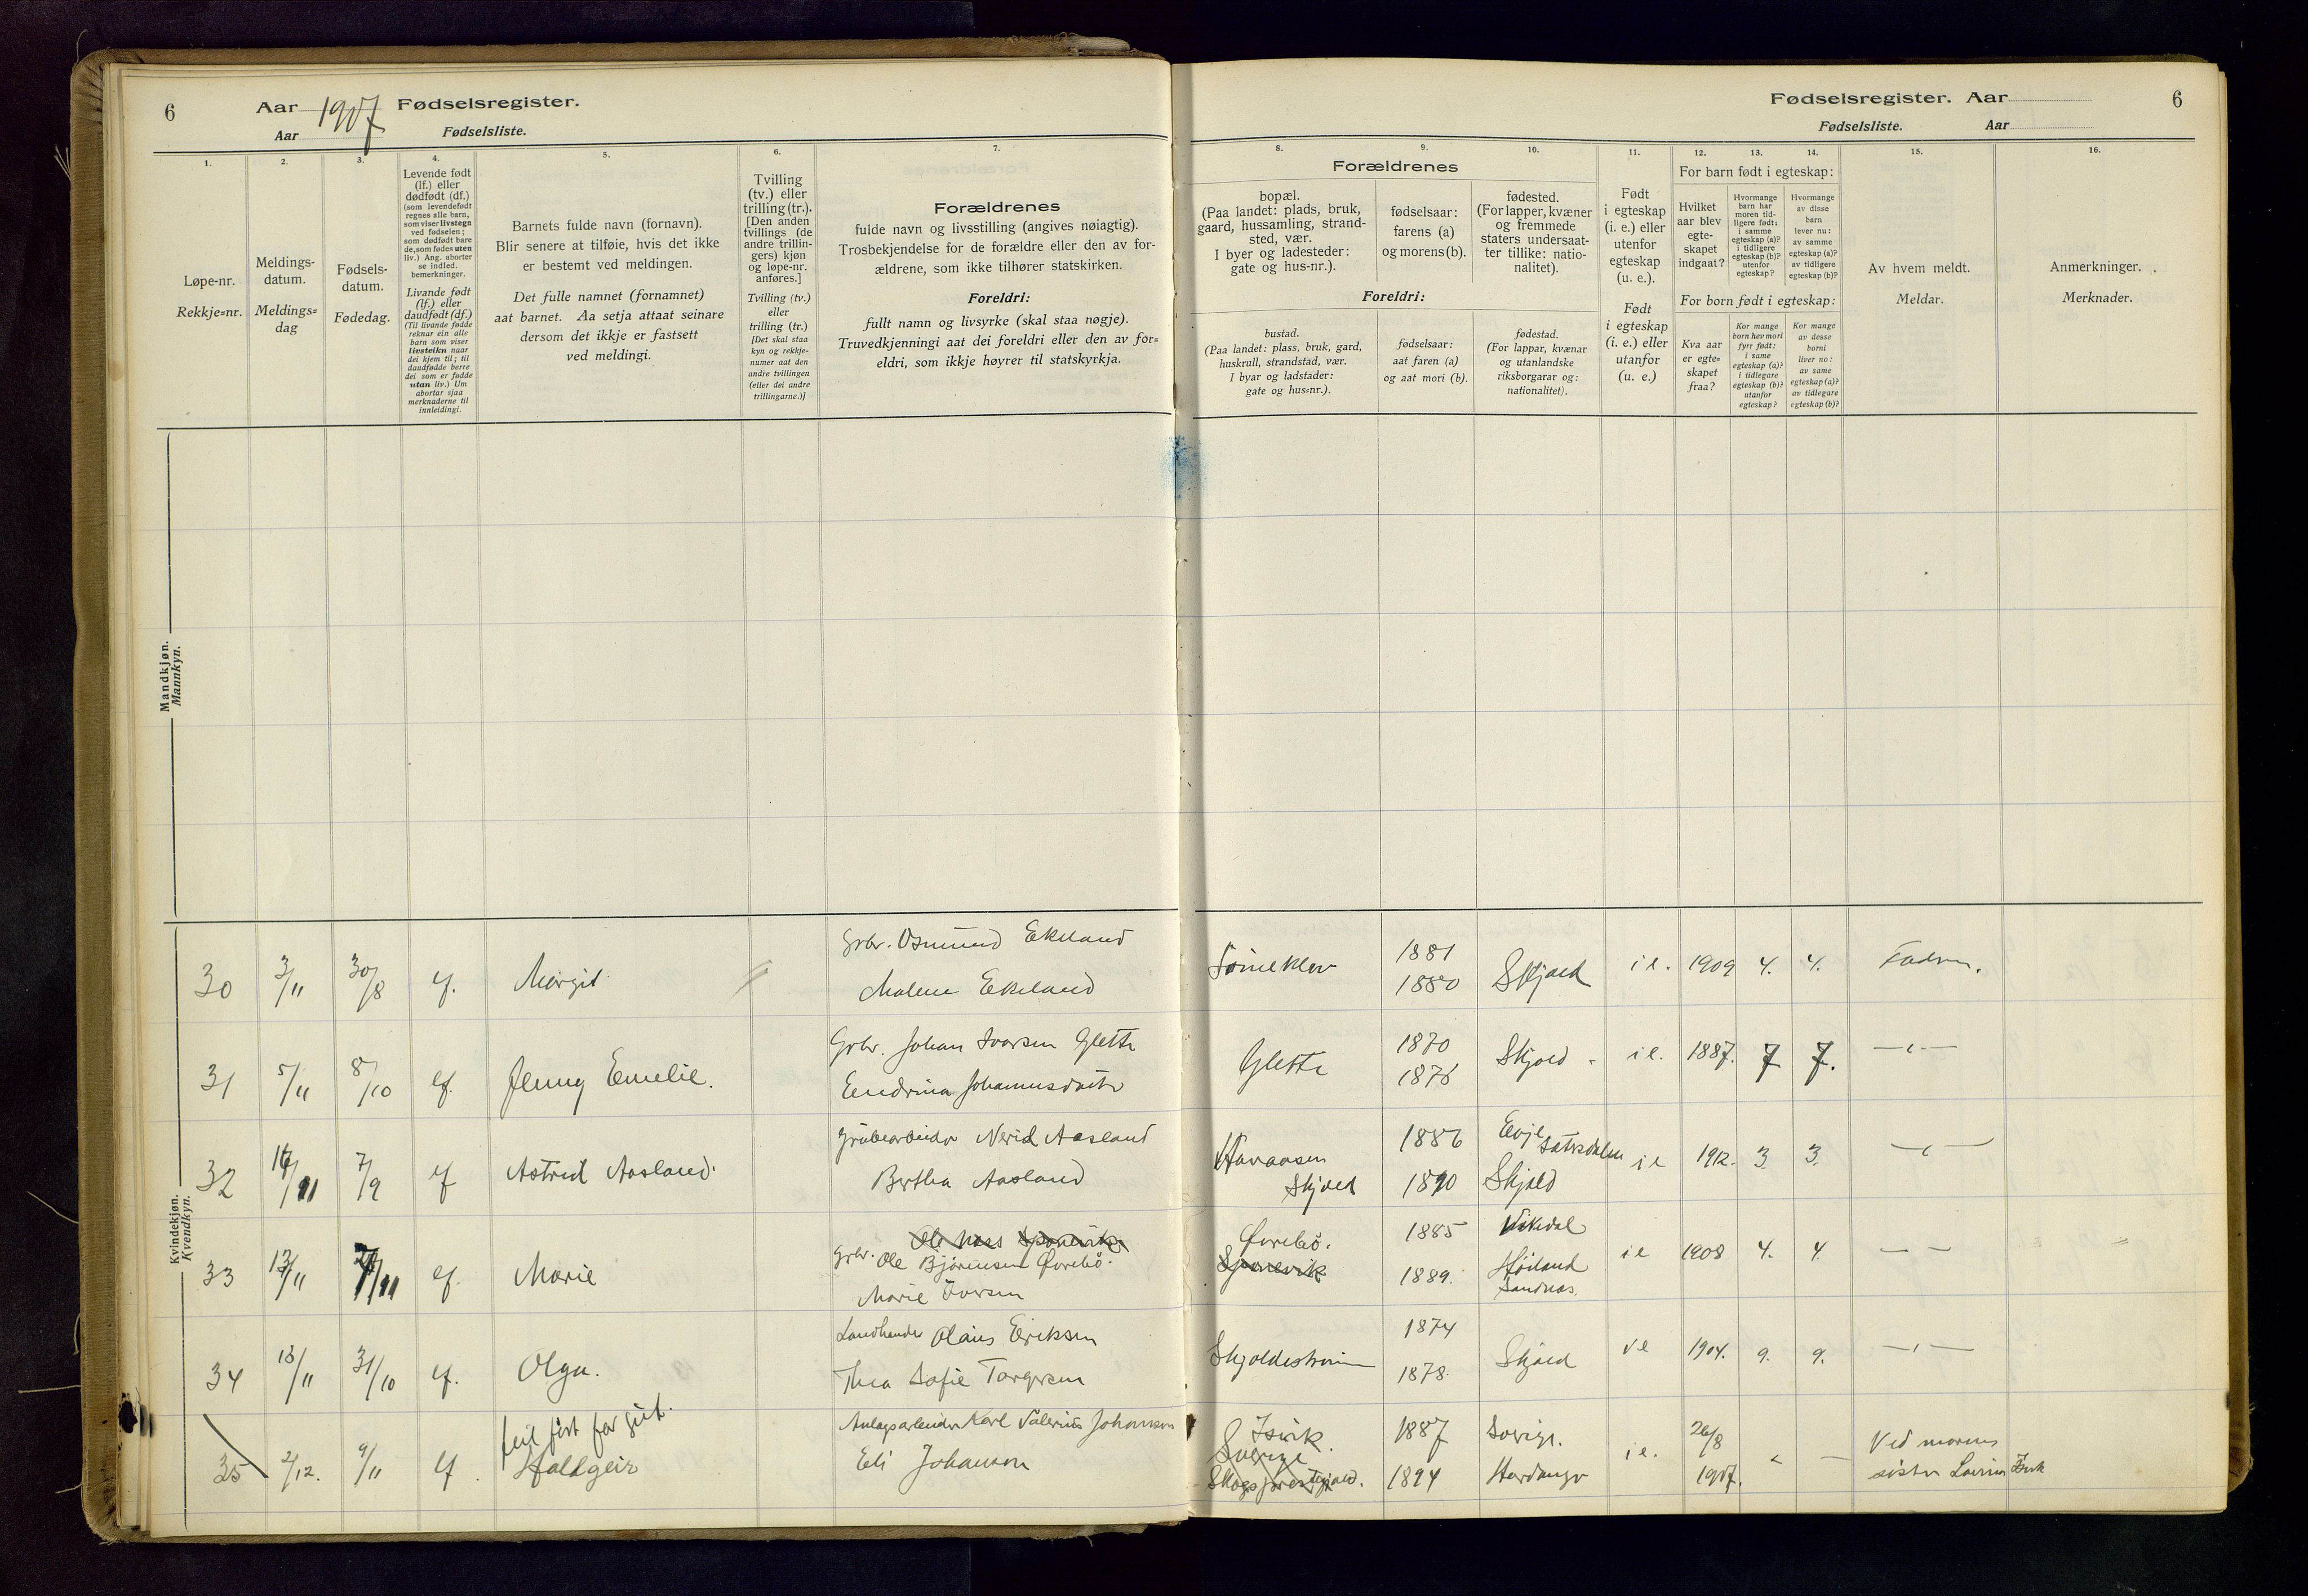 6
Aar 1917 Fødselsregister.
Aar Fødselsliste.
1.
Løpe-nr.
Rekkje=nr.
2.
Meldings-
datum.
Meldings=
dag
3.
Fødsels-
datum.
Fødedag.
4.
Levende født
(lf.) eller
dødfødt (df.)
(som levendefødt
regnes alle barn,
som viser livstegn
ved fødselen;
som dødfødt bare
de, som fødes uten
liv.) Ang. aborter
se indled.
bemerkninger.
Livande født
(lf.) eller
daudfødt (df.)
(Til livande fødde
reknar ein alle
barn som viser
livsteikn naar
dei kjem til; til
daudfødde berre
dei som er fødde
utan liv.) Um
abortar sjaa
merknaderne til
innleidingi.
5.
Barnets fulde navn (fornavn).
Blir senere at tilføie, hvis det ikke
er bestemt ved meldingen.
Det fulle namnet (fornamnet)
aat barnet. Aa setja attaat seinare
dersom det ikkje er fastsett
ved meldingi.
6.
Tvilling
(tv.) eller
trilling (tr.).
[Den anden
tvillings (de
andre trillin-
gers) kjøn
og løpe-nr.
anføres.]
Tvilling (tv.)
eller
trilling (tr.)
[Det skal staa
kyn og rekkje-
numer aat den
andre tvillingen
(eller dei andre
trillingarne.)]
7.
Forældrenes
fulde navn og livsstilling (angives nøiagtig).
Trosbekjendelse for de forældre eller den av for-
ældrene, som ikke tilhører statskirken.
Foreldri:
fullt namn og livsyrke (skal staa nøgje).
Truvedkjenningi aat dei foreldri eller den av for=
eldri, som ikkje høyrer til statskyrkja.
Fødselsregister. Aar
6
Fødselsliste. Aar
8.
Forældrenes
bopæl.
(Paa landet: plads, bruk,
gaard, hussamling, strand-
sted, vær.
I byer og ladesteder:
gate og hus-nr.).
Foreldri:
bustad.
(Paa landet: plass, bruk, gard,
huskrull, strandstad, vær.
I byar og ladstader:
gate og hus=nr.).
9.
fødselsaar:
farens (a)
og morens (b).
fødselsaar:
aat faren (a)
og aat mori (b).
10.
fødested.
(For lapper, kvæner
og fremmede
staters undersaat-
ter tillike: natio-
nalitet).
fødestad.
(For lappar, kvænar
og utanlandske
riksborgarar og:
nationalitet).
11.
Født
i egteskap
(i. e.) eller
utenfor
egteskap
(u. e.).
Født
i egteskap
(i. e.) eller
utanfor
(u. e.)
For barn født i egteskap:
12.
Hvilket
aar blev
egte-
skapet
indgaat?
13.
Hvormange
barn har
moren tid-
ligere født:
i samme
egteskap (a)?
i tidligere
egteskap (b)?
utenfor
egteskap?
14.
Hvormange
av disse
barn
lever nu:
av samme
egteskap (a)?
av tidligere
egteskap (b)?
For born født i egteskap:
Kva aar
er egte=
skapet
fraa?
Kor mange
born hev mori
fyrr født:
i same
egteskap (a)?
i tidlegare
egteskap (b)?
utanfor
egteskap?
Kor mange
av desse
borni
liver no:
av same
egteskap (a)?
av tidlegare
egteskap (b)?
15.
Av hvem meldt.
Meldar.
16.
Anmerkninger.
Merknader.
Mandkjøn.
Mannkyn.
Kvindekjøn.
Kvendkyn.
30 3/11 30/8 lf. Margit Grbr. Osmund Ekeland
Malene Ekeland
1881
1880 Skjold i e. 1909 4. 4. Fadren.
31 5/11 8/10 lf. Jenny Emelie. Grbr. Johan Ivarsen Glette
Endrina Johannesdatter
Glette 1870
1876 Skjold i e. 1887. 7 7. — „ —
32 16/11 7/9 lf Astrid Aasland. Grubearbeider Nerid Aasland
Bertha Aasland
Skjold 1886
1890 Evje Sætersdalen
Skjold i e 1912. 3. 3. — „ —
33 13/11 lf. Marie Grbr. Ole Bjørnsen Øvrebø.
Marie Iversen
Øvrebø. 1885
1889. Vikedal
Høiland
Sandnes. i e 1908 4. 4. — —
34 13/11 31/10 lf. Olga. Landhandler Olaus Eriksen
Thea Sofie Torgersen
Skjoldestraumen 1874
1878. Skjold i e 1904. 9. 9. — „ —
35 2/12. 9/11 lf. feil ført for gut.
Haldgeir Anlagsarbeider Karl Valerius Johanson
Eli Johanson
Isvik.
Sverige 1887
1894 Sverige.
Hardanger i e. 26/8
1917. „ — Ved morens
søster Lovise Isvik